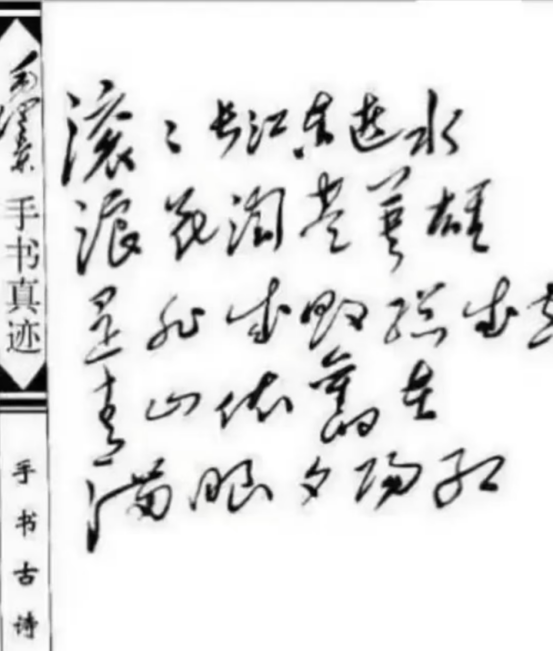 毛泽东
手书真迹
手书古诗
滚々长江东逝水
浪花淘尽英雄
是非成败总成
青山依舊在
满眼夕阳红